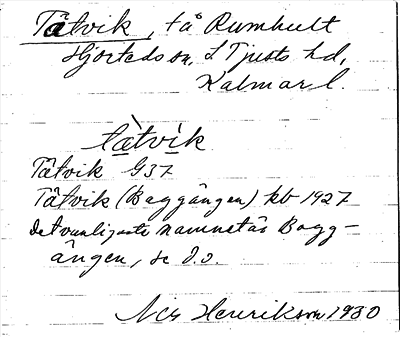 Tåtvik, tå Rumhult
Hjorteds sn, S Tjusts hd,
Kalmar l.
tå̀tvík
Tåtvik G37
Tåtvik (Baggängen) kb 1927
det vanligaste namnet är Bagg-
ängen, se d.o.
Nils Henrikson 1930